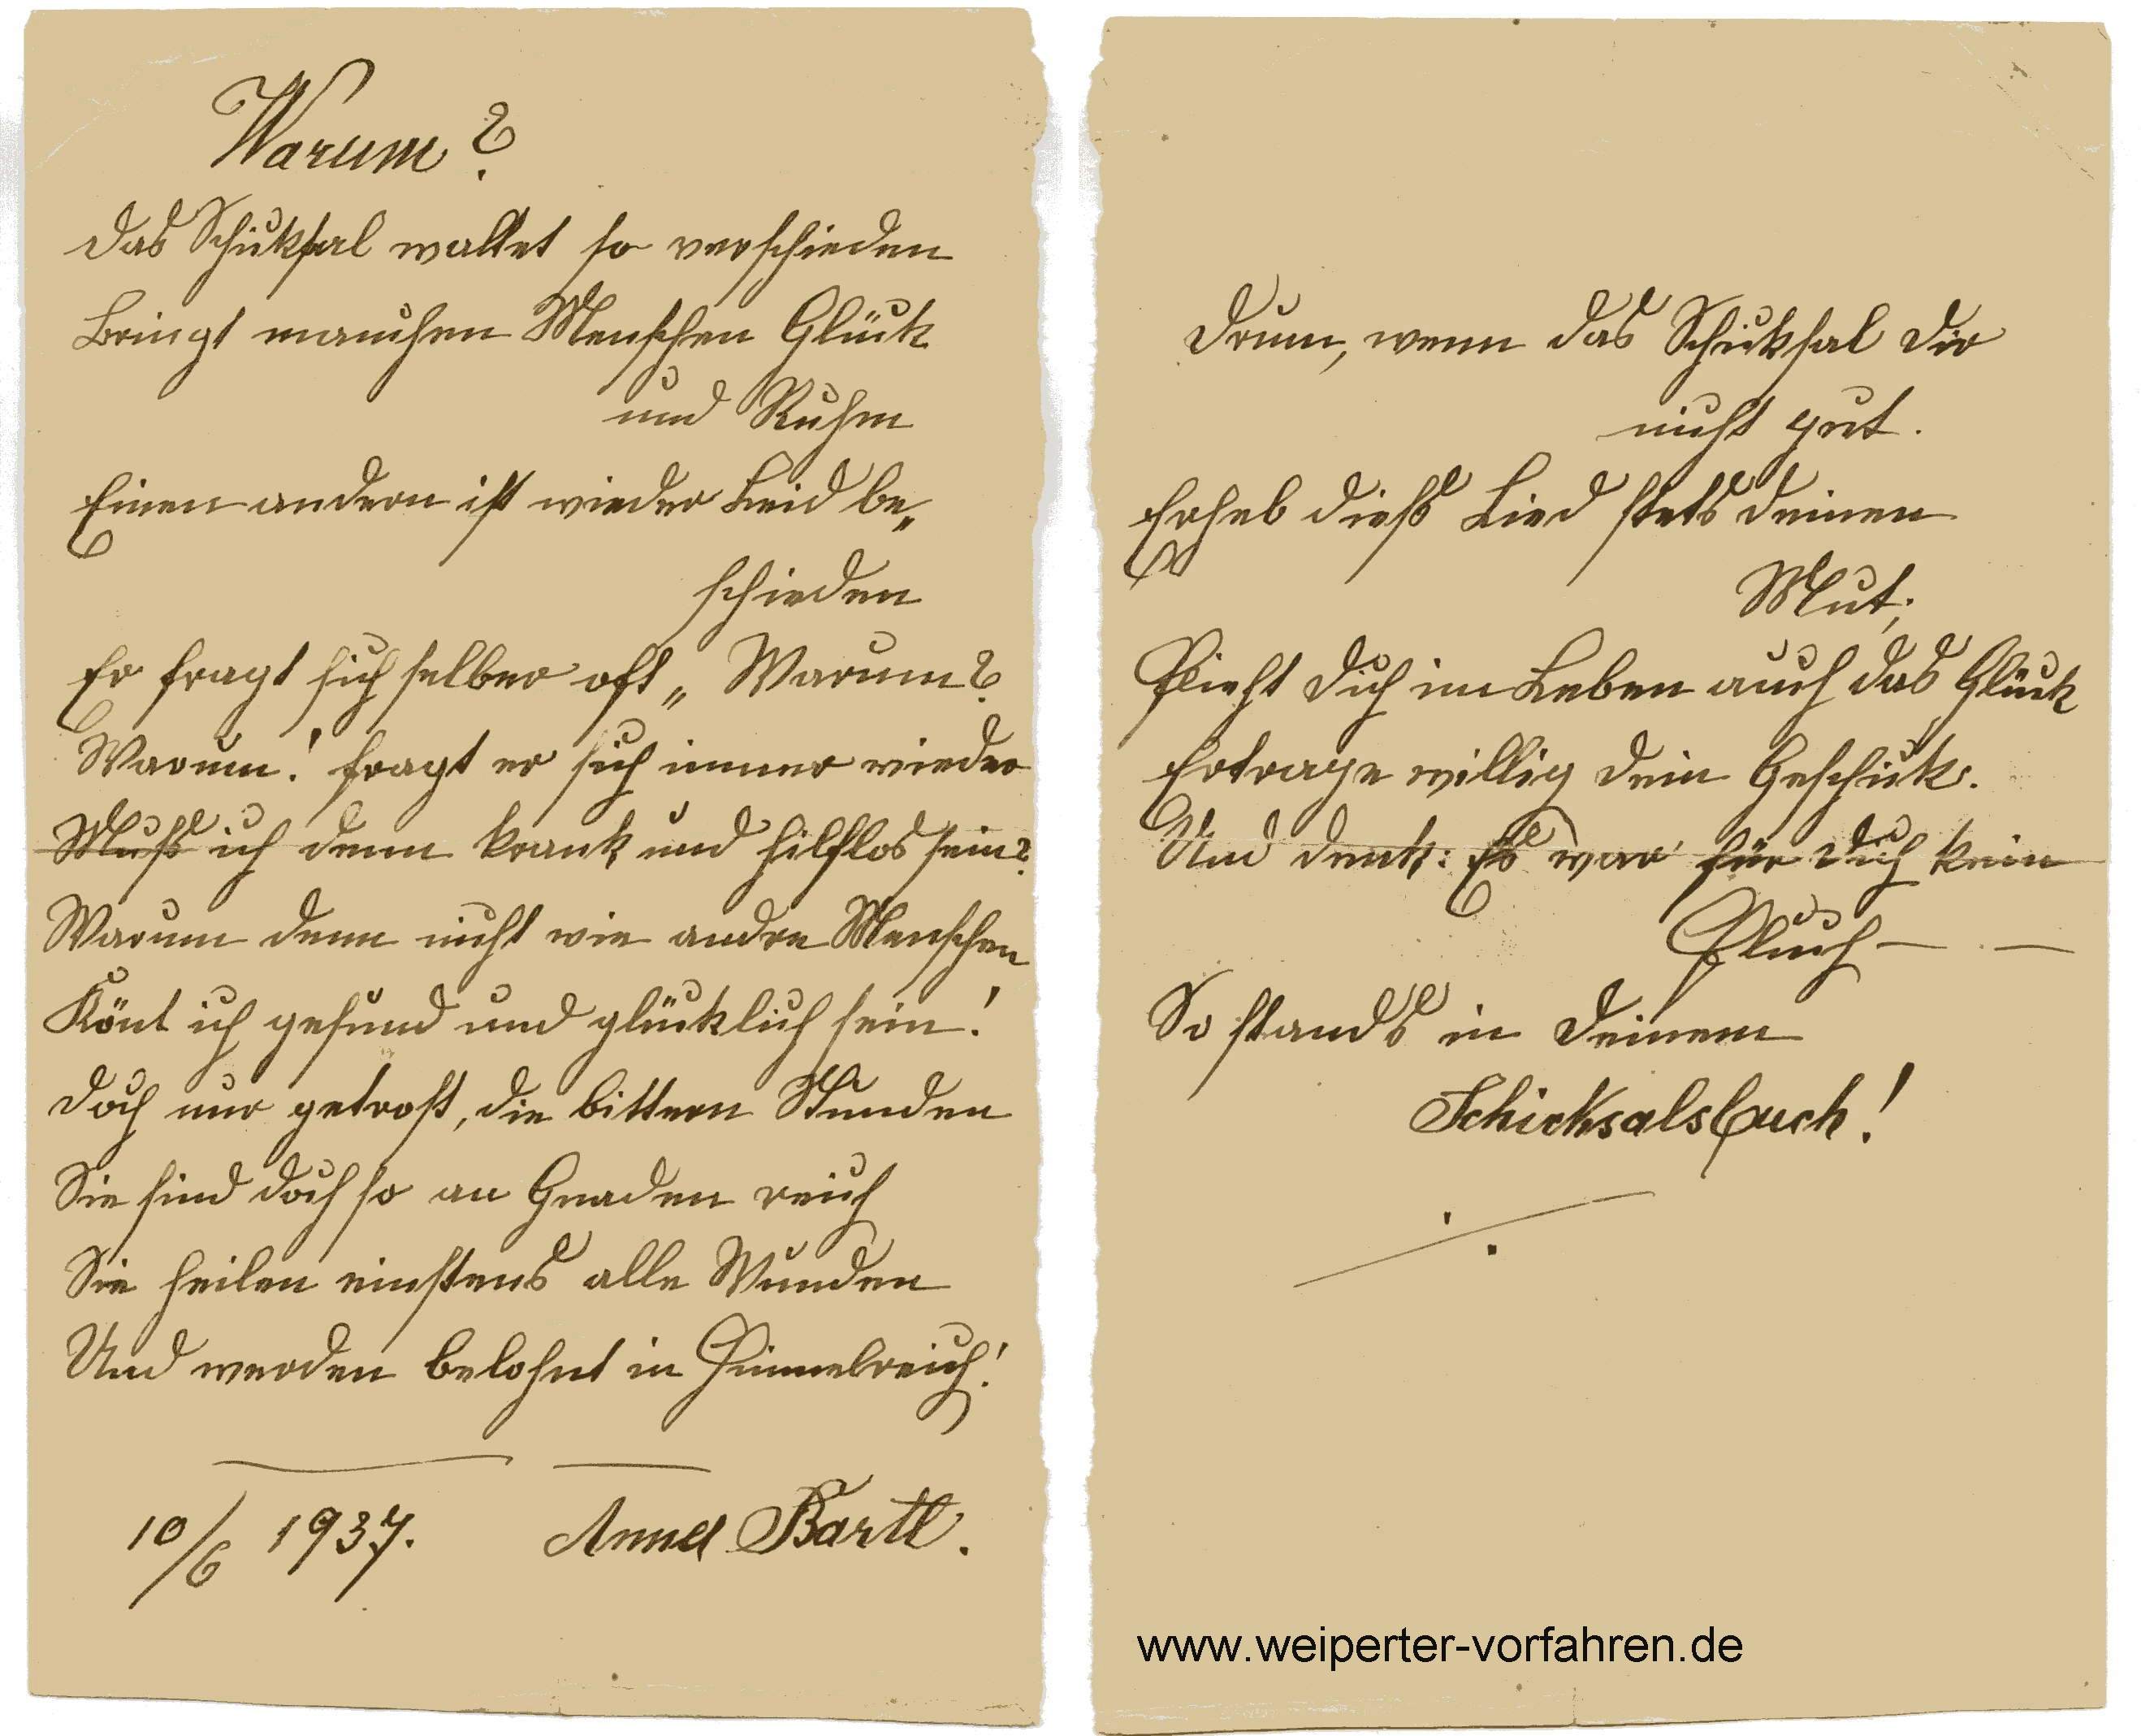 Warum?
Das Schicksal waltet so verschieden
Bringt manchen Menschen Glück
und Ruhm
Einen andern ist wieder Leid be„
schieden
Er fragt sich selber oft „Warum?
Warum! fragt er sich immer wieder
Muß ich denn krank und hilflos sein?
Warum denn nicht wie andre Menschen
Könt ich gesund und glücklich sein!
Doch nur getrost, die bittern Stunden
Sie sind doch so an Gnaden reich
Sie heilen einstens alle Wunden
Und werden belohnt in Himmelreich!
10/6 1937. Anna Bartl.
Drum, wenn das Schicksal dir
nicht gut.
Erheb dieß Lied stets deinen
Mut;
Flieht dich im Leben auch das Glück
Ertrage willig dein Geschick.
Und denk: Es war für dich kein
Fluch — —
So stands in deinem
Schicksalsbuch!
www.weiperter-vorfahren.de